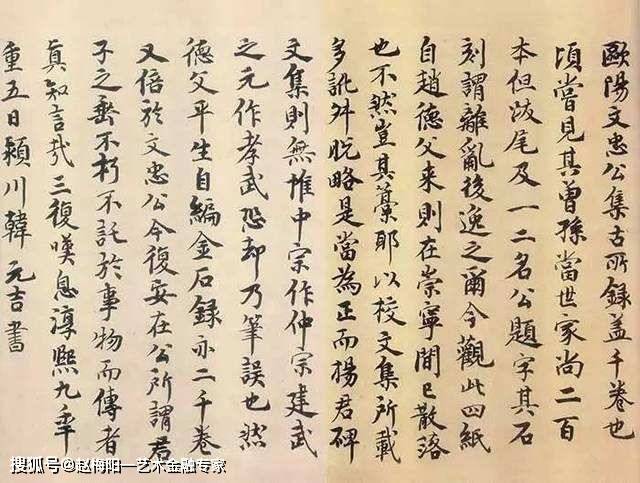 歐陽文忠公集古所録盖千卷也
頃嘗見其曾孫當世家尚二百
本但跋尾及一二名公題字其石
刻謂離亂後逸之爾今觀此四紙
自趙德父来則在崇寧間已散落
也不然豈其藁耶以校文集所載
多訛舛脱略是當為正而楊君碑
文集則無惟中宗作仲宗建武
之元作孝武恐却乃筆誤也然
德父平生自編金石録亦二千卷
又倍於文忠公今復安在公所謂君
子之垂不朽不託於事物而傳者
真知言哉三復嘆息淳熙九年
重五日潁川韓元吉書
搜狐号@赵梅阳一艺术金融专家